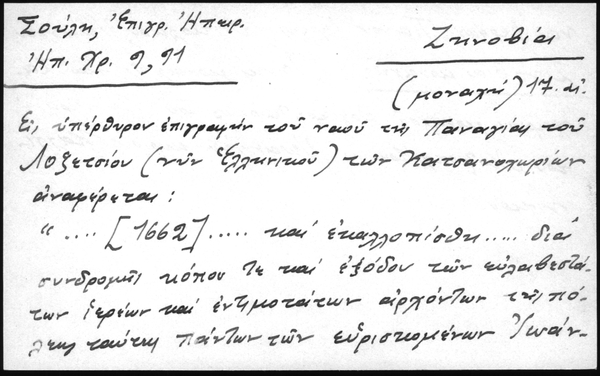 Σούλη, Ἐπιγρ. Ἠπειρ.
Ἠπ. Χρ. 9, 91
Ζηνοβία
(μοναχή) 17. αἰ.
Εἰς ὑπέρθυρον ἐπιγραφὴν τοῦ ναοῦ τῆς Παναγίας τοῦ
Λοζετσίου (νῦν Ἑλληνικοῦ) τῶν Κατσανοχωρίων
ἀναφέρεται:
".... [1662] ..... καὶ ἐκαλλοπίσθη ..... διὰ
συνδρομῆς κόπου τε καὶ ἐξόδου τῶν εὐλαβεστά-
των ἱερέων καὶ ἐντιμοτάτων ἀρχόντων τῆς πό-
λεως ταύτης πάντων τῶν εὑρισκομένων Ἰωάν-